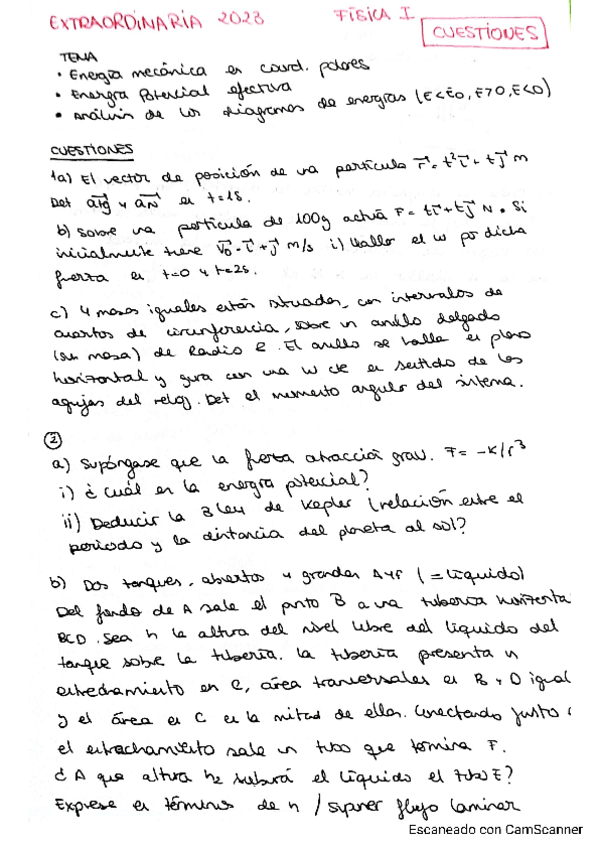 EXTRAORDINARIA 2023 FÍSICA I
CUESTIONES
TEMA
• Energía mecánica en coord. polares
• Energía Potencial efectiva
• Análisis de los diagramas de energías (E<E0, E>0, E<0)
CUESTIONES
1a) El vector de posición de una partícula r⃗ = t²i⃗ + tj⃗ m
Det a⃗tg y a⃗N en t=1s.
b) Sobre una partícula de 100g actúa F = ti⃗ + tj⃗ N. Si
inicialmente tiene v⃗0 = i⃗ + j⃗ m/s i) Hallar el W por dicha
fuerza en t=0 y t=2s.
c) 4 masas iguales están situadas, con intervalos de
cuartos de circunferencia, sobre un anillo delgado
(sin masa) de Radio R. El anillo se halla en plano
horizontal y gira con una w cte en sentido de las
agujas del reloj. Det el momento angular del sistema.
②
a) Supóngase que la fuerza atracción grav. F = -K/r³
i) ¿cuál es la energía potencial?
ii) Deducir la 3 ley de Kepler (relación entre el
periodo y la distancia del planeta al sol?
b) Dos tanques, abiertos y grandes A y F (= líquido)
Del fondo de A sale el punto B a una tubería horizonta
BCD. Sea h la altura del nivel libre del líquido del
tanque sobre la tubería. La tubería presenta un
estrechamiento en C, área transversales en B y D igual
y el área en C es la mitad de ellas. Conectando justo
el estrechamiento sale un tubo que termina F.
¿A que altura h2 subirá el líquido el tubo E?
Exprese en términos de h / suponer flujo laminar
Escaneado con CamScanner